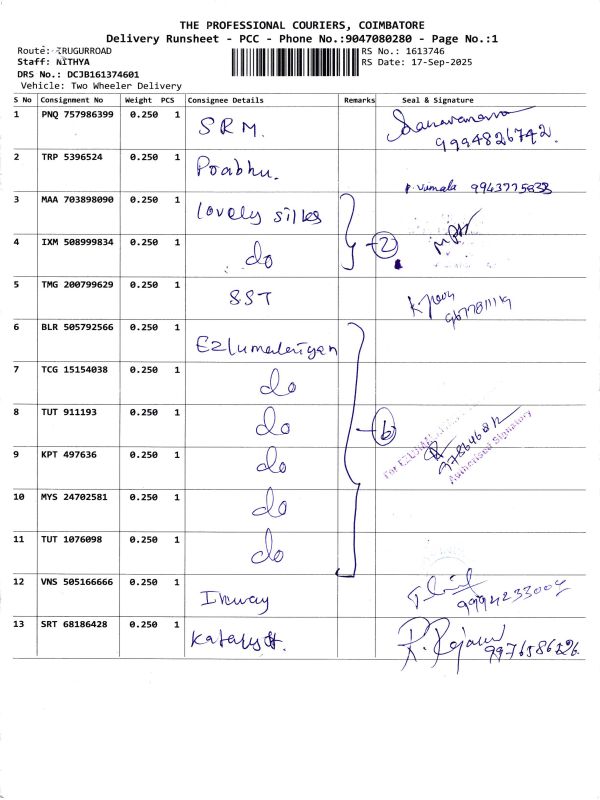 THE PROFESSIONAL COURIERS, COIMBATORE
Delivery Runsheet - PCC - Phone No.:9047080280 - Page No.:1
Route: IRUGURROAD
RS No.: 1613746
Staff: NITHYA
RS Date: 17-Sep-2025
DRS No.: DCJB161374601
Vehicle: Two Wheeler Delivery
S No Consignment No Weight PCS Consignee Details Remarks Seal & Signature
1 PNQ 757986399 0.250 1 SRM.
9994826742.
2 TRP 5396524 0.250 1 Prabhu.
P. Vumala 9943775633
3 MAA 703898090 0.250 1 lovely silks
4 IXM 508999834 0.250 1 do 2
5 TMG 200799629 0.250 1 SST
6 BLR 505792566 0.250 1 Ezlumalaiyan
7 TCG 15154038 0.250 1 do
8 TUT 911193 0.250 1 do 6
9 KPT 497636 0.250 1 do
Authorised Signatory
10 MYS 24702581 0.250 1 do
11 TUT 1076098 0.250 1 do
12 VNS 505166666 0.250 1 Inway
9994233004
13 SRT 68186428 0.250 1
R. Rajan
9976586226